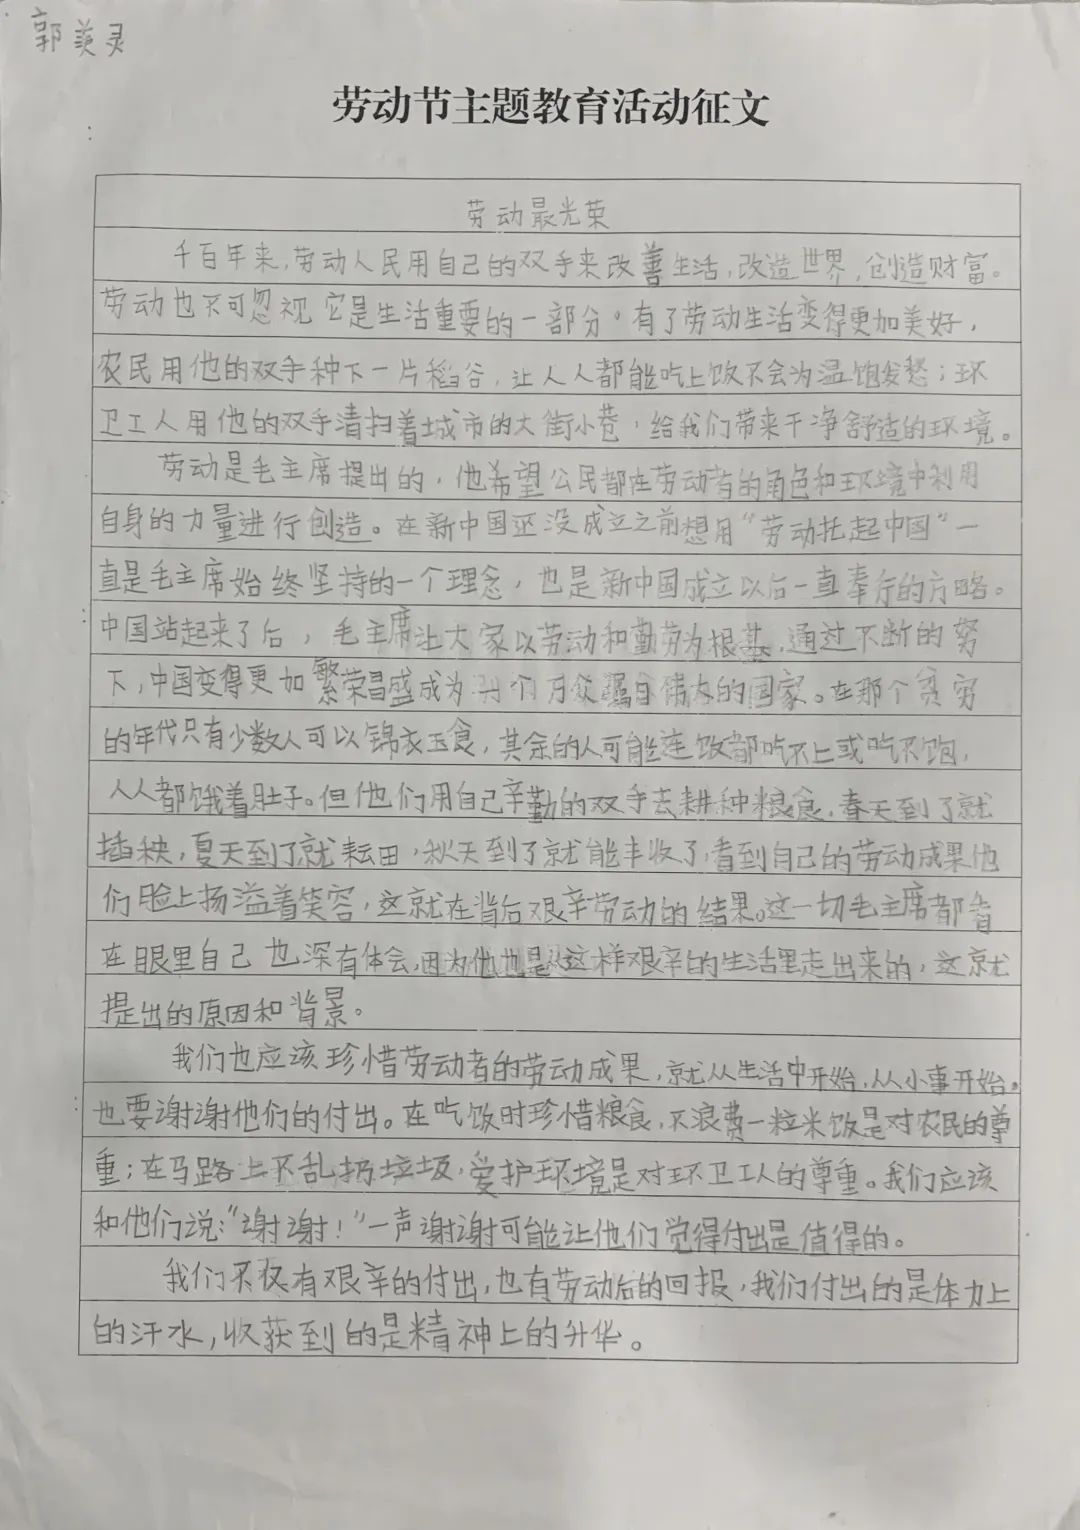 郭美灵
劳动节主题教育活动征文
劳动最光荣
千百年来,劳动人民用自己的双手来改善生活,改造世界,创造财富。
劳动也不可忽视它是生活重要的一部分。有了劳动生活变得更加美好,
农民用他的双手种下一片稻谷,让人人都能吃上饭不会为温饱发愁;环
卫工人用他的双手清扫着城市的大街小巷,给我们带来干净舒适的环境。
劳动是毛主席提出的,他希望公民都在劳动者的角色和环境中利用
自身的力量进行创造。在新中国还没成立之前想用“劳动托起中国”一
直是毛主席始终坚持的一个理念,也是新中国成立以后一直奉行的方略。
中国站起来了后,毛主席让大家以劳动和勤劳为根基,通过不断的努
下,中国变得更加繁荣昌盛成为 们万众瞩目伟大的国家。在那个贫穷
的年代只有少数人可以锦衣玉食,其余的人可能连饭都吃不上或吃不饱,
人人都饿着肚子。但他们用自己辛勤的双手去耕种粮食,春天到了就
插秧,夏天到了就耘田,秋天到了就能丰收了,看到自己的劳动成果他
们脸上扬溢着笑容,这就在背后艰辛劳动的结果。这一切毛主席都看
在眼里自己也深有体会,因为他也是从这样艰辛的生活里走出来的,这就
提出的原因和背景。
我们也应该珍惜劳动者的劳动成果,就从生活中开始,从小事开始。
也要谢谢他们的付出。在吃饭时珍惜粮食,不浪费一粒米饭是对农民的尊
重;在马路上不乱扔垃圾,爱护环境是对环卫工人的尊重。我们应该
和他们说:“谢谢!”一声谢谢可能让他们觉得付出是值得的。
我们不仅有艰辛的付出,也有劳动后的回报,我们付出的是体力上
的汗水,收获到的是精神上的升华。